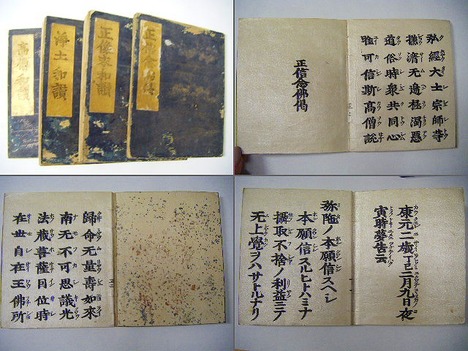 正信念佛偈
正像末和讃
浄土和讃
高僧和讃
弘經大士宗師等
拯濟无邊極濁惡
道俗時衆共同心
唯可信斯高僧説
正信念佛偈
歸命无量壽如來
南无不可思議光
法藏菩薩因位時
在世自在王佛所
康元二歳丁巳二月九日夜
寅時夢告云
弥陀ノ本願信スヘシ
本願信スルヒトハミナ
攝取不捨ノ利益ニテ
无上覺ヲハサトルナリ